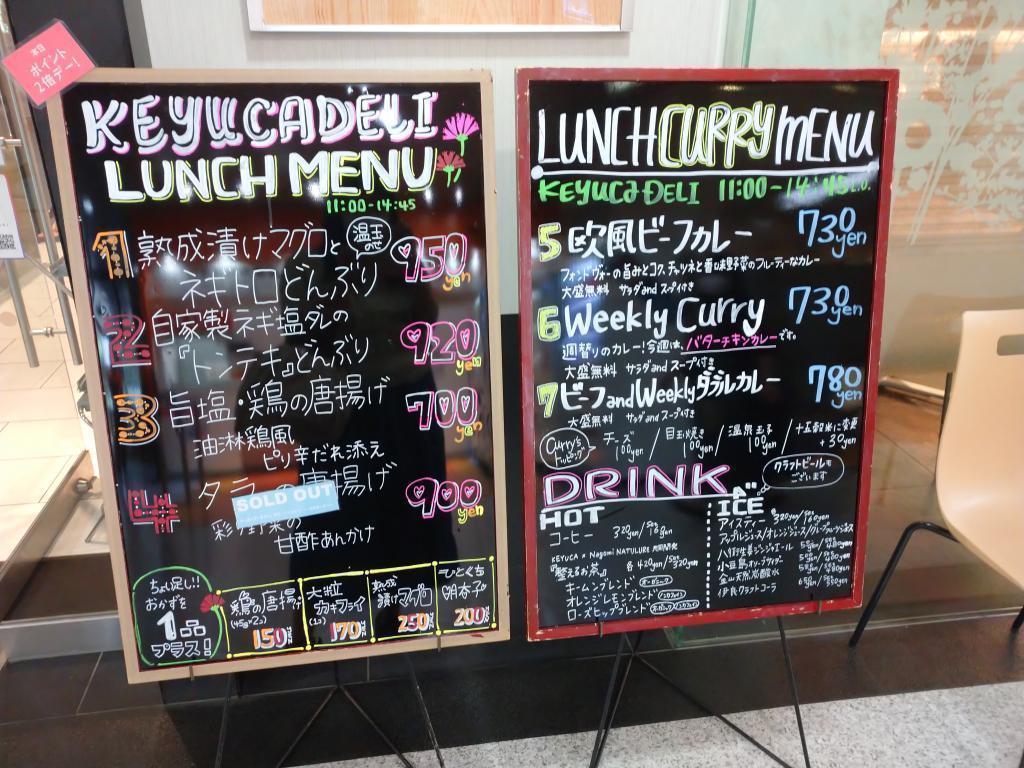 本日
ポイント
2倍デー!
KEYUCADELI
LUNCH MENU
11:00-14:45
1 熟成漬けマグロと 温玉のせ
ネギトロどんぶり 950yen
2 自家製ネギ塩ダレの
『トンテキ』どんぶり 920yen
3 旨塩・鶏の唐揚げ 700yen
油淋鶏風
ピリ辛だれ添え
4 タラの唐揚げ 900yen
SOLD OUT
彩り野菜の
甘酢あんかけ
ちょい足し!!
おかずを
1品
プラス!
鶏の唐揚げ
(45g×2コ)
150
大粒
カキフライ
(1コ)
170
漬けマグロ
250
ひとくち
明太子
200
LUNCH CURRY MENU
KEYUCA DELI 11:00-14:45 L.O.
5 欧風ビーフカレー 730yen
フォンドヴォーの旨みとコク、チャツネと香味野菜のフルーティーなカレー
大盛無料 サラダ and スープ付き
6 Weekly Curry 730yen
週替りのカレー!今週は、バターチキンカレーです。
大盛無料 サラダ and スープ付き
7 ビーフ and Weekly ダブルカレー 780yen
大盛無料 サラダ and スープ付き
Curry's トッピング
チーズ 100yen / 目玉焼き 100yen / 温泉玉子 100yen / 十五穀米に変更 +30yen
クラフトビールもございます
DRINK
HOT
コーヒー 320yen/Set 160yen
KEYUCA × Nagomi NATULURE 共同開発
『整えるお茶』 各420yen/Set 320yen
キームンブレンド オーガニック
オレンジレモンブレンド ノンカフェイン
ローズヒップブレンド オーガニック ノンカフェイン
ICE
アイスティー 320yen/Set 160yen
アップルジュース/オレンジジュース/グレープフルーツジュース
八代生姜ジンジャエール
小豆島オリーブサイダー
金山天然炭酸水
伊良クラフトコーラ